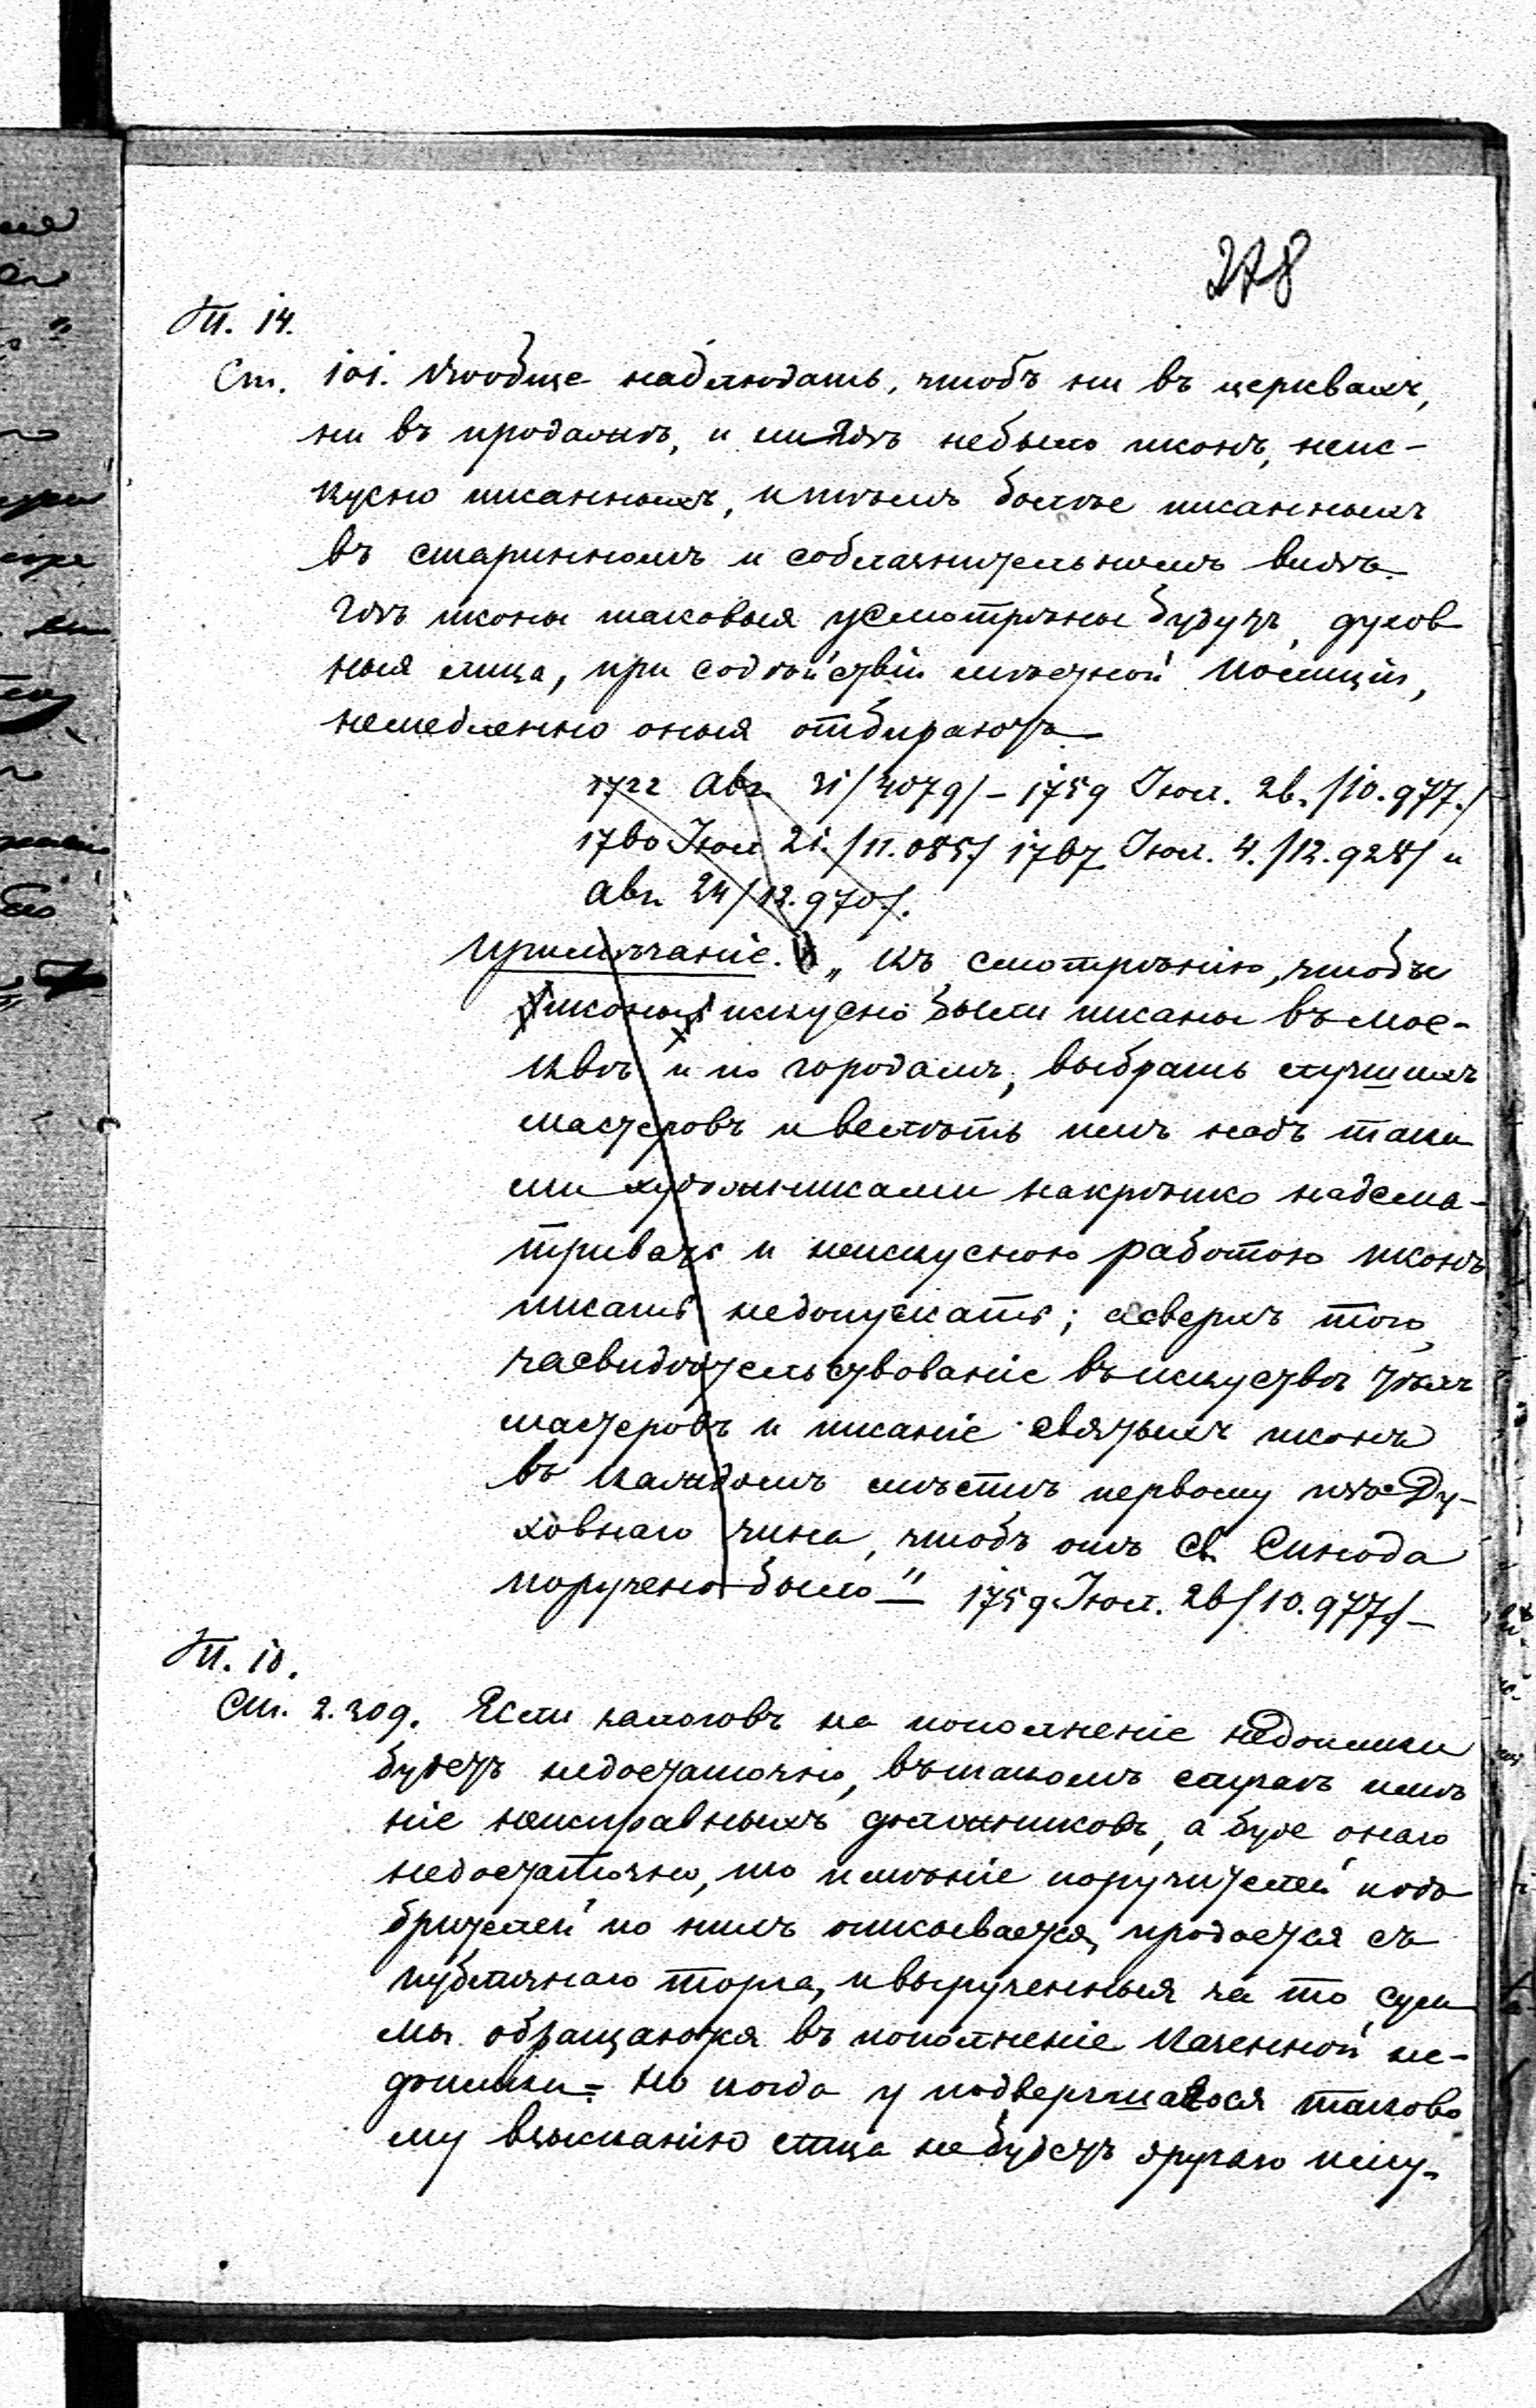 278
Т. 14.
Ст. 101. Вообще наблюдать, чтобъ ни въ церквахъ,
ни въ продажѣ, и нигдѣ небыло иконъ, неис-
кусно писанныхъ, и тѣмъ болѣе писанныхъ
въ старинномъ и соблазнительномъ видѣ.
Гдѣ иконы таковыя усмотрѣны будутъ, духов
ныя лица, при содѣйствіи мѣстной Полиціи,
немедленно оныя отбираютъ
1722 Авг. 31/4079/ – 1759 Іюл. 26. /10.977./
1760 Іюл 21. /11.085/ 1767 Іюл. 4. /12.928/ и
Авг. 24/12.970/.
Примѣчаніе. „Къ смотрѣнію, чтобы
иконы искусно были писаны въ Мос-
квѣ и по городамъ, выбрать лучшихъ
мастеровъ и велѣть имъ надъ таки
ми художниками накрѣпко надсма-
тривать и неискусною работою иконъ
писать недопускать; а сверхъ того,
засвидѣтельствованіе въ искуствѣ тѣхъ
мастеровъ и писаніе святыхъ иконъ
въ каждомъ мѣстѣ первому изъ Ду-
ховнаго чина, чтобъ отъ Св. Синода
поручено было" 1759 Іюл. 26/10.977/ –
Т. 10.
Ст. 2.209. Если залоговъ на пополненіе недоимки
будетъ недостаточно, въ такомъ случаѣ имѣ
ніе неисправныхъ должниковъ, а буде онаго
недостаточно, то имѣніе поручителей и одо
брителей по нимъ описывается, продается съ
публичнаго торга, и вырученныя за то сум
мы обращаются въ пополненіе казенной не-
доимки. Но когда у подвергшагося таково
му взысканію лица не будетъ другаго иму-